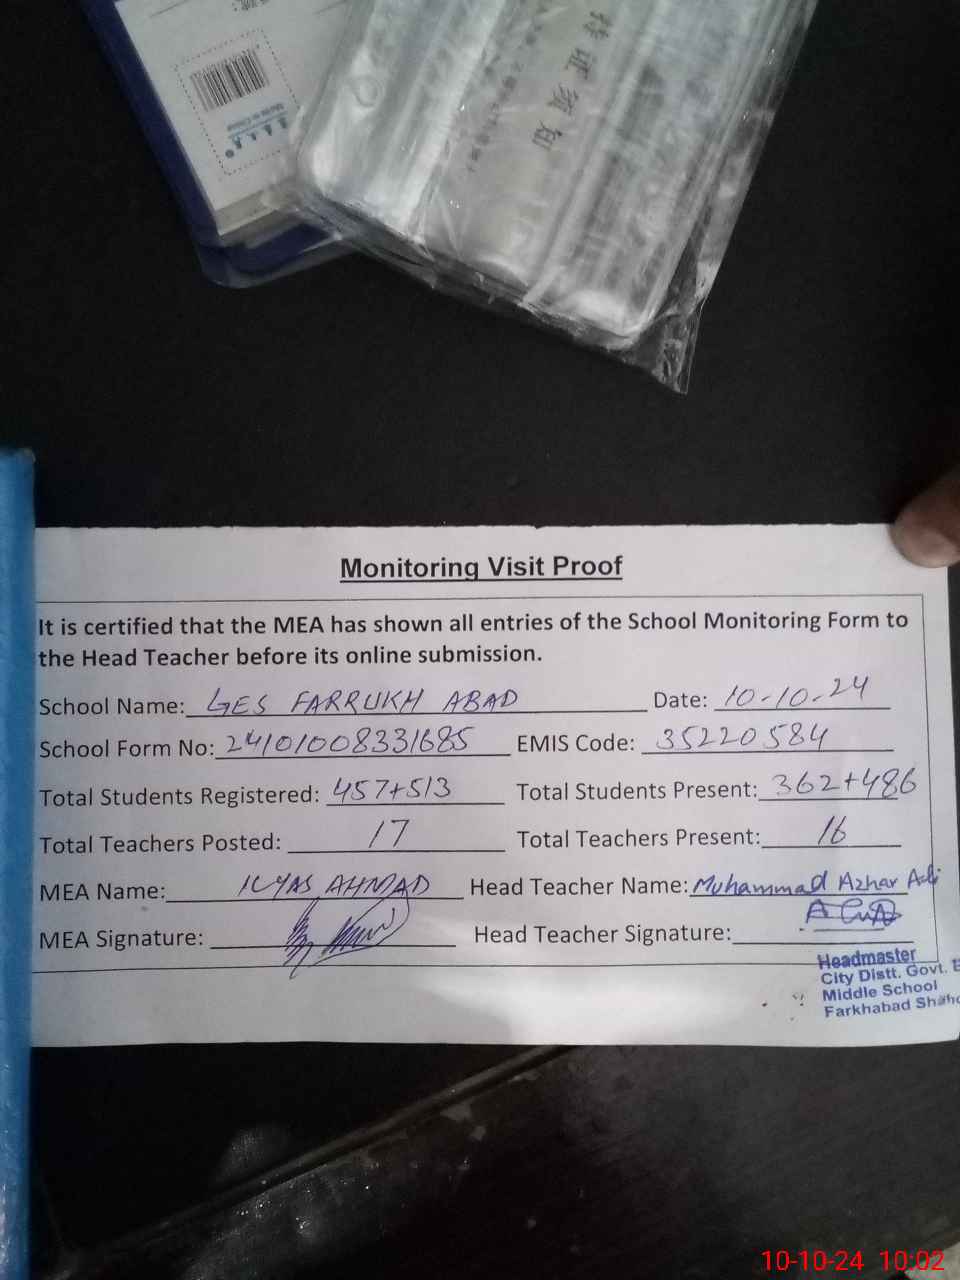 Made in China
持证须知
Monitoring Visit Proof
It is certified that the MEA has shown all entries of the School Monitoring Form to
the Head Teacher before its online submission.
School Name: GES FARRUKH ABAD Date: 10-10-24
School Form No: 24101008331685 EMIS Code: 35220584
Total Students Registered: 457+513 Total Students Present: 362+486
Total Teachers Posted: 17 Total Teachers Present: 16
MEA Name: ILYAS AHMAD Head Teacher Name: Muhammad Azhar
MEA Signature: Head Teacher Signature:
Headmaster
City Distt. Govt.
Middle School
Farkhabad
10-10-24 10:02